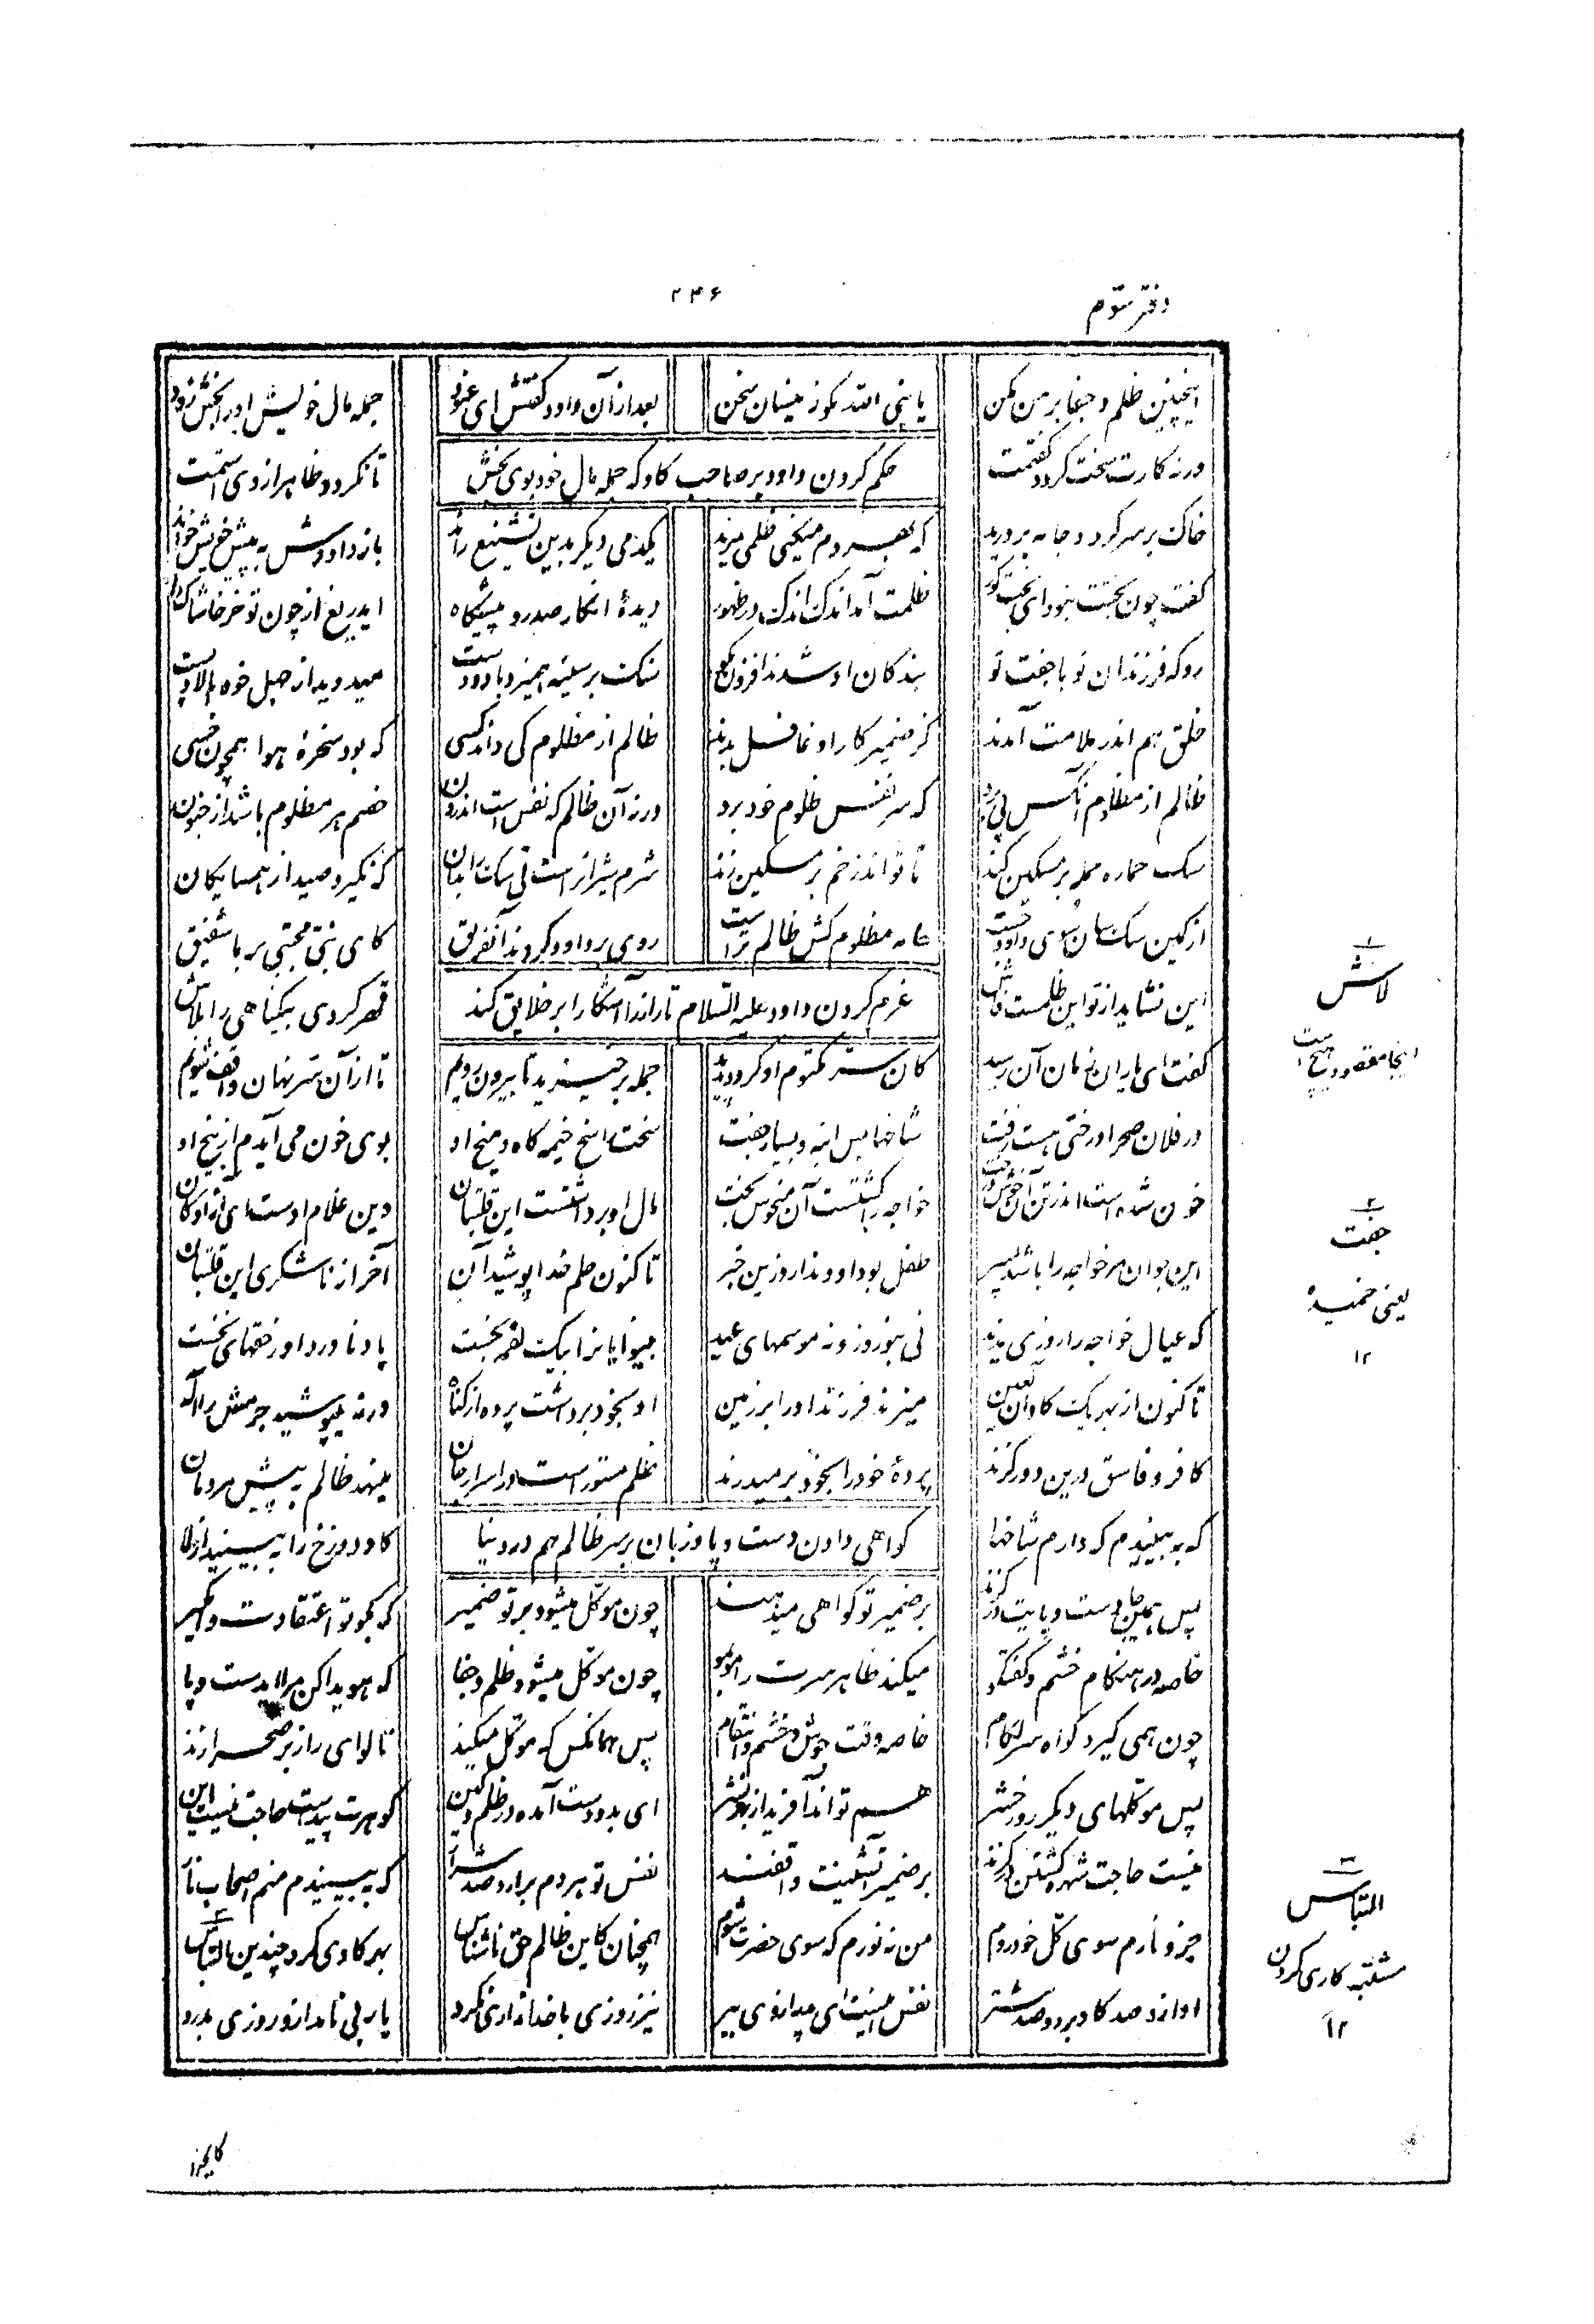 دفتر سوم
۲۴۶
اینچنین ظلم و جفا بر من مکن یا نبی الله مگو زینسان سخن بعد از آن داود گفتش ای عنود جمله مال خویش او را بخش زود
حکم کردن داود بر صاحب گاو که جمله مال خود بوی بخش
ورنه کارت سخت گردد گفتمت تا نگردد ظاهر از وی استمت
خاک بر سر کرد و جامه بر درید که بهر دم میکنی ظلمی مزید یکدمی دیگر بدین تشنیع راند باز داودش به پیش خویش خواند
گفت چون بختت نبود ای بخت کور ظلمت آمد اندک اندک در ظهور دیدۀ آنگاه صدر و پیشگاه ایدریغ از چون تو خر خاشاک و کاه
رو که فرزندان تو با جفت تو بندگان او شدند افزون مگو سنگ بر سینه همیزد با دو دست میدوید از جهل خود بالا و پست
خلق هم اندر ملامت آمدند کز ضمیر کار او غافل بدند ظالم از مظلوم کی داند کسی که بود سخرۀ هوا همچون خسی
ظالم از مظلوم آنکس پی برد که سر نفس ظلوم خود برد ورنه آن ظالم که نفس است اندرون خصم هر مظلوم باشد از جنون
سگ هماره حمله بر مسکین کند تا تواند زخم بر مسکین زند شرم شیرانراست نی سگ را بدان که نگیرد صید از همسایگان
عامه مظلوم کش ظالم پرست از کمین سگسان سوی داود جست روی بر داود کردند آنفریق کای نبی مجتبی بر ما شفیق
عزم کردن داود علیه السلام تا راز آشکارا بر خلایق کند
این نشاید از تو این ظلمست فاش قهر کردی بیگناهی را بلاش
گفت ای یاران زمان آن رسید کان سر مکتوم او گردد پدید جمله برخیزید تا بیرون رویم تا از آن سر نهان واقف شویم
در فلان صحرا درختی هست زفت شاخهایش انبه و بسیار جفت سخت راسخ خیمه گاه و میخ او بوی خون می آیدم از بیخ او
خون شده است اندر بن آن خوش درخت خواجه را کشتست آن منحوس بخت مال او برداشتست این قلتبان وین غلام اوست ای آزادگان
این جوان مر خواجه را باشد پسر طفل بود او و ندارد زین خبر تا کنون حلم خدا پوشید آن آخر از ناشکری این قلتبان
که عیال خواجه را روزی ندید نی بنوروز و نه موسمهای عید بینوایانرا بیک لقمه نجست یاد ناورد او ز حقهای نخست
تا کنون از بهر یک گاو آن لعین میزند فرزند او را بر زمین او بخود برداشت پرده از گناه ورنه میپوشید جرمش را اله
کافر و فاسق درین دور گزند پردۀ خود را بخود بر میدرند ظلم مستور است در اسرار جان مینهد ظالم به پیش مردمان
گواهی دادن دست و پا و زبان بر سر ظالم هم در دنیا
که ببینیدم که دارم شاخها گاو دوزخ را ببینید از ملا
پس همینجا دست و پایت در گزند بر ضمیر تو گواهی میدهند چون موکل میشود بر تو ضمیر که بگو تو اعتقادت وا مگیر
خاصه در هنگام خشم و گفتگو میکند ظاهر سرت را مو بمو چون موکل میشود ظلم و جفا که هویدا کن مرا ای دست و پا
چون همی گیرد گواه سر لگام خاصه وقت جوش و خشم و انتقام پس همانکس که موکل میکند تا لوای راز بر صحرا زند
پس موکلهای دیگر روز حشر هم تواند آفرید از بهر نشر ای بده دست آمده در ظلم و کین گوهرت پیداست حاجت نیست این
نیست حاجت شهره گشتن در گزند بر ضمیر آتشینت واقفند نفس تو هر دم برآرد صد شرار که ببینیدم منم ز اصحاب نار
جزو نارم سوی کل خود روم من نه نورم که سوی حضرت شوم همچنان کاین ظالم حق ناشناس بهر گاوی کرد چندین التباس
او ازو صد گاو برد و صد شتر نفس اینست ای پدر از وی ببر نیز روزی با خدا زاری نکرد یا ربی نامد ازو روزی بدرد
۱
لاش
اینجا مقصود هیچ است
۲
جفت
یعنی خمیده
۱۲
۳
التباس
مشتبه کاری کردن
۱۲